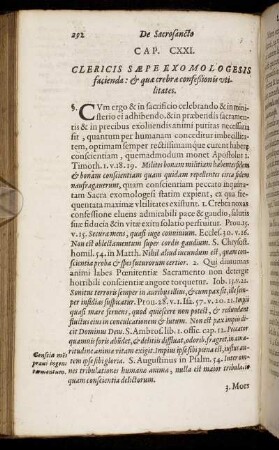 292 De Sacrosancto
CAP. CXXI.
CLERICIS SÆPE EXOMOLOGESIS
facienda: & quæ crebræ confessionis vti-
litates.
§. CVm ergo & in sacrificio celebrando & in mini-
sterio ei adhibendo, & in præbendis sacramen-
tis & in precibus exoluendis animi puritas necessaria
sit, quantum per humanam conceditur imbecillita-
tem, optimum semper rectissimumque curent habere
conscientiam, quemadmodum monet Apostolus 1.
Timoth. 1. v. 18. 19. Milites bonam militiam habens fidem
& bonam conscientiam quam quidam repellentes circa fidem
naufragauerunt, quam conscientiam peccato inquina-
tam Sacra exomologesi statim expient, ex qua fre-
quentata maximæ vtilitates existunt. 1. Crebra noxas
confessione eluens admirabili pace & gaudio, salutis
suæ fiducia & in vitæ exitu solatio perfruitur. Prou.
v. 15. Secura mens, quasi iuge conuiuium. Eccles. 30. v. 16.
Non est oblectamentum super cordis gaudium. S. Chrysost.
homil. 54. in Matth. Nihil aliud iucundum est, quam con-
scientia proba & spes futurorum certior. 2. Qui
animi labes Pœnitentiæ Sacramento non detergit
horribili conscientiæ angore torquetur. Iob.
Sonitus terroris semper in auribus illius, & cum pax sit, ille sem-
per insidias suspicatur. Prou. 28. v. 1. Isa. 57. v. 20. 21. Impii
quasi mare feruens, quod quiescere non potest, & redundant
fluctus eius in conculcationem & lutum. Non est pax impiis di-
cit Dominus Deus. S. Ambros. lib. 1. offic. cap. 12. Pec
quamuis foris abundet, & deliciis diffluat, odoribus fragret, in ama-
ritudine animæ vitam exigit. Impius ipse sibi pœna est, iustus
tem ipse sibi gloria. S. Augustinus in Psalm. 54. Inter om-
nes tribulationes humanæ animæ, nulla est maior tribulatio
quam conscientia delictorum.
3. Mors